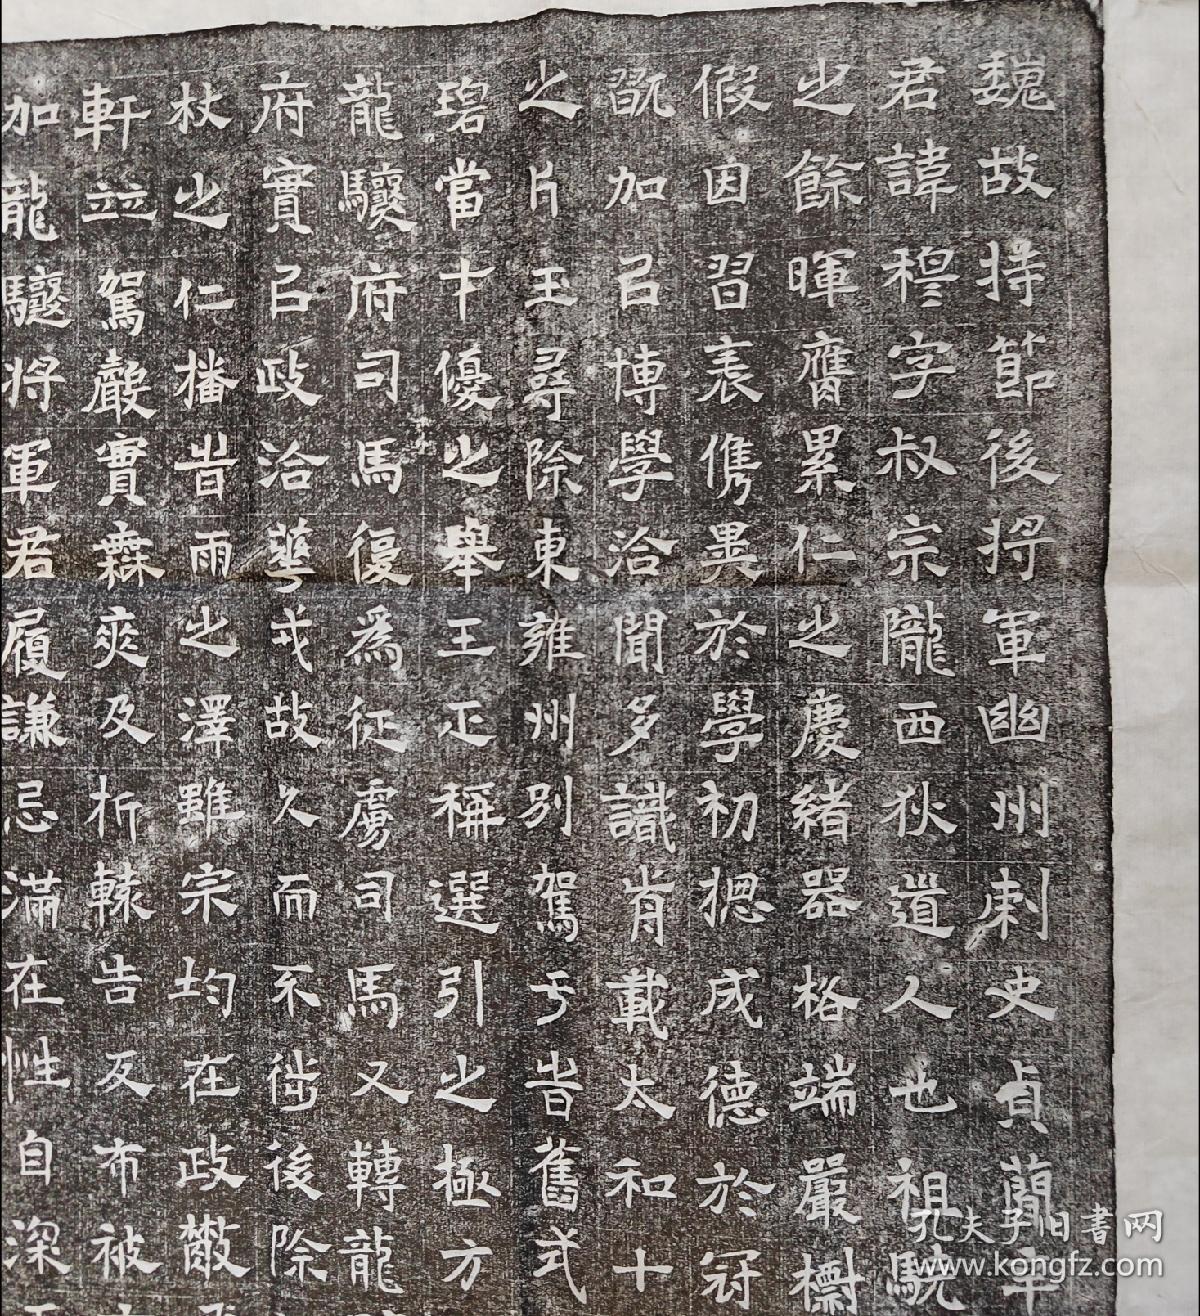 魏故持節後將軍幽州刺史貞蕳辛
君諱穆字叔宗隴西狄道人也祖驍
之餘暉膺累仁之慶緒器格端嚴
假因習表儁異於學初揔成德於冠
翫加㠯博學洽聞多識肯載太和十
之片玉尋除東雍州別駕亏旹舊式
碧當才優之舉王正稱選引之極方
龍驤府司馬復爲征虜司馬又轉龍
府實㠯政洽華戎故久而不
後除
杖之仁播旹雨之澤雖宗均在政
軒並駕嚴實霖爽及折轅告反布被
加龍驤將軍君履謙忌滿在性自深
孔夫子旧書网
www.kongfz.com